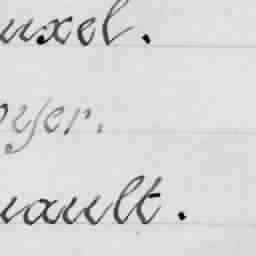 uxel.
oyer.
uault.